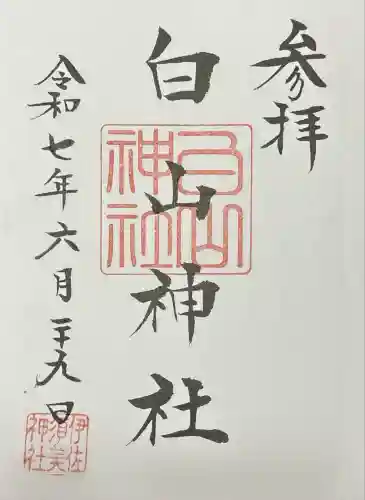 参拝
白山神社
白山神社
令和七年六月二十九日
伊佐
須美
神社